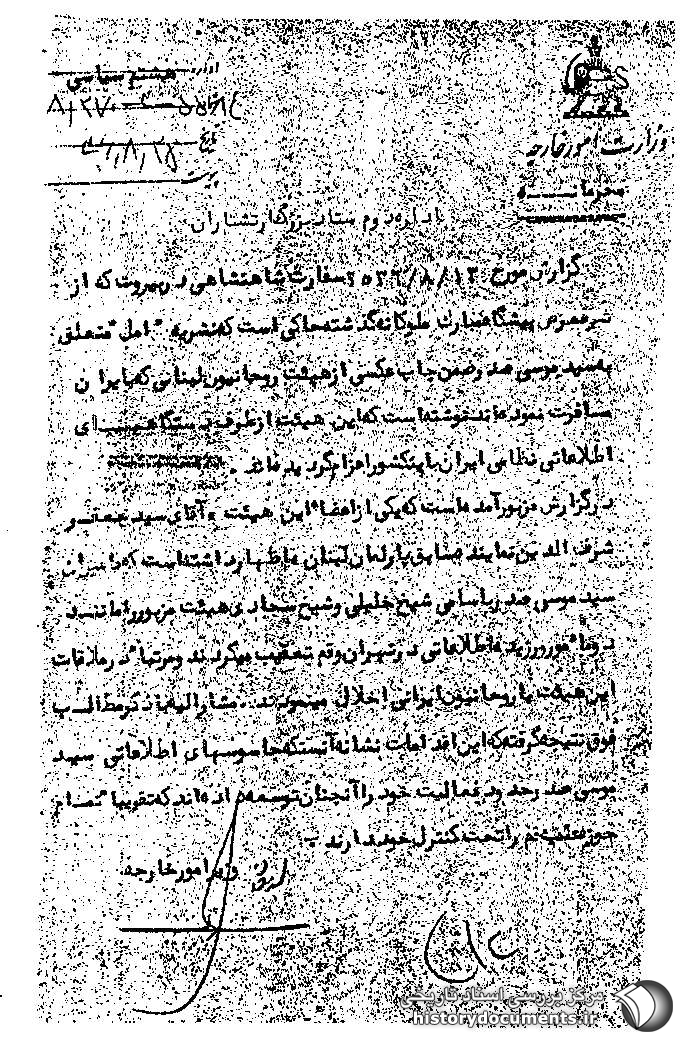 اداره هشتم سیاسی
شماره
تاریخ
پیوست
وزارت امور خارجه
محرمانه
اداره دوم ستاد بزرگ ارتشتاران
گزارش مورخ ۲۵۳۶/۸/۱۲ سفارت شاهنشاهی در بیروت که از
شرفعرض پیشگاه مبارک ملوکانه گذشته حاکی است که نشریه "امل" متعلق
به سید موسی صدر ضمن چاپ عکسی از هیئت روحانیون لبنانی که بایران
مسافرت نموده‌اند نوشته است که این هیئت از طرف دستگاههای
اطلاعاتی نظامی ایران باینکشور اعزام گردیده‌اند.
در گزارش مزبور آمده است که یکی از اعضاء این هیئت، آقای سید جعفر
شرف الدین نماینده سابق پارلمان لبنان اظهار داشته است که
سید موسی صدر باسامی شیخ خلیلی و شیخ سجادی هیئت مزبور را مانند
دو مامور ورزیده اطلاعاتی در تهران و قم تعقیب میکردند و مرتبا" در ملاقات
این هیئت با روحانیون ایرانی اخلال مینمودند. مشارالیه با ذکر مطالب
فوق نتیجه گرفته که این اقدامات نشانه آنستکه جاسوسهای اطلاعاتی سید
موسی صدر حدود فعالیت خود را آنچنان توسعه داده‌اند که تقریبا" تمام
حوزه علمیه قم را تحت کنترل خود دارند.
وزیر امور خارجه
مرکز بررسی اسناد تاریخی
historydocuments.ir